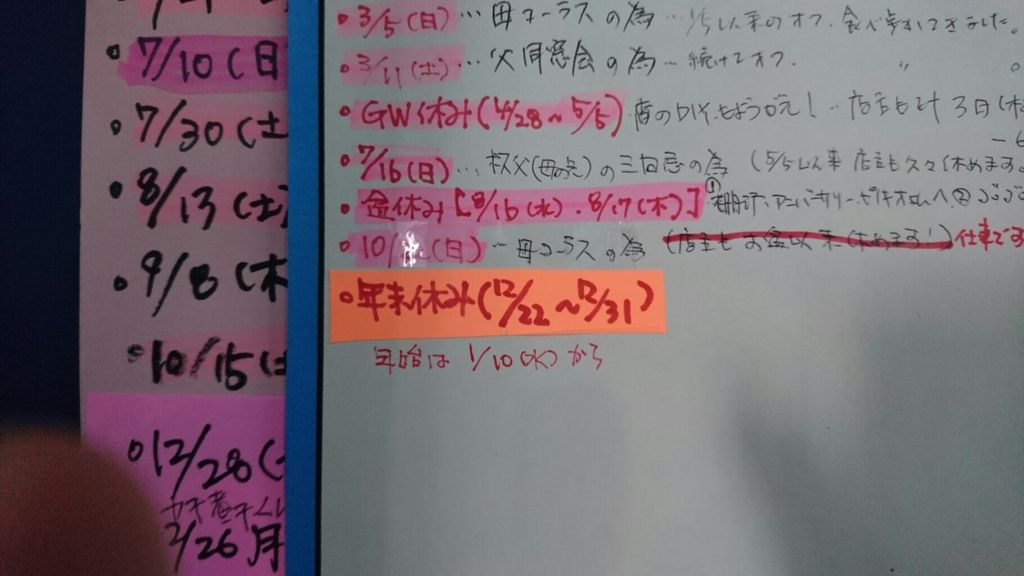 7/10(日
7/30(土
8/13(土)
9/8(木
10/15(土
12/28(
2/26月
・3/5(日)…母コーラスの為…1/5以来のオフ.食べ歩きしてきました。
・3/11(土)…父同窓会の為…続けてオフ. 〃
・GW休み(4/28〜5/5)店のDIYもようがえ!‥店主も計3日(木
・7/16(日)…秋父(母の兄)の三回忌の為(5/5以来 店主も久々休めます。
・盆休み[8/16(水).8/17(木)]①棚汁.アニバーサリー.ピキオさんへ②
・10/ (日)…母コーラスの為(店主もお盆以来休めます!)仕事です
・年末休み(12/22〜12/31)
年始は1/10(水)から